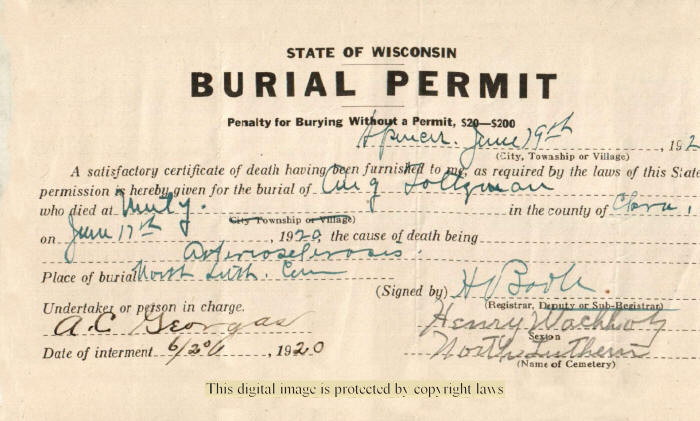 STATE OF WISCONSIN
BURIAL PERMIT
Penalty for Burying Without a Permit, $20—$200
Spencer. June 19th, 192
(City, Township or Village)
A satisfactory certificate of death having been furnished to me, as required by the laws of this State
permission is hereby given for the burial of Aug
who died at Unity. in the county of Clark
City Township or Village)
on June 17th, 1920, the cause of death being
Arteriosclerosis.
Place of burial North Luth. Cem
(Signed by) H
(Registrar, Deputy or Sub-Registrar)
Undertaker or person in charge.
A.C. Georgas
Henry Wachholz
Sexton
Date of interment 6/20, 1920
North Lutheran
(Name of Cemetery)
This digital image is protected by copyright laws